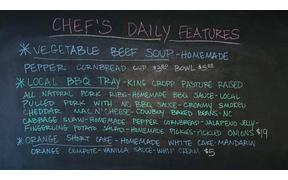 CHEF'S DAILY FEATURES
* VEGETABLE BEEF SOUP - HOMEMADE
PEPPER CORNBREAD CUP $3.50 BOWL $5.00
* LOCAL BBQ TRAY - KING CROPP PASTURE RAISED
ALL NATURAL PORK RIBS - HOMEMADE BBQ SAUCE - LOCAL
PULLED PORK WITH NC BBQ SAUCE - CREAMY SMOKED
CHEDDAR MAC N' CHEESE - COWBOY BAKED BEANS - NC
CABBAGE SLAW - HOMEMADE PEPPER CORNBREAD - JALAPENO JELLY -
FINGERLING POTATO SALAD - HOMEMADE PICKLES - PICKLED ONIONS $19
* ORANGE SHORT CAKE - HOMEMADE WHITE CAKE - MANDARIN
ORANGE COMPOTE - VANILLA SAUCE - WHIP CREAM $5